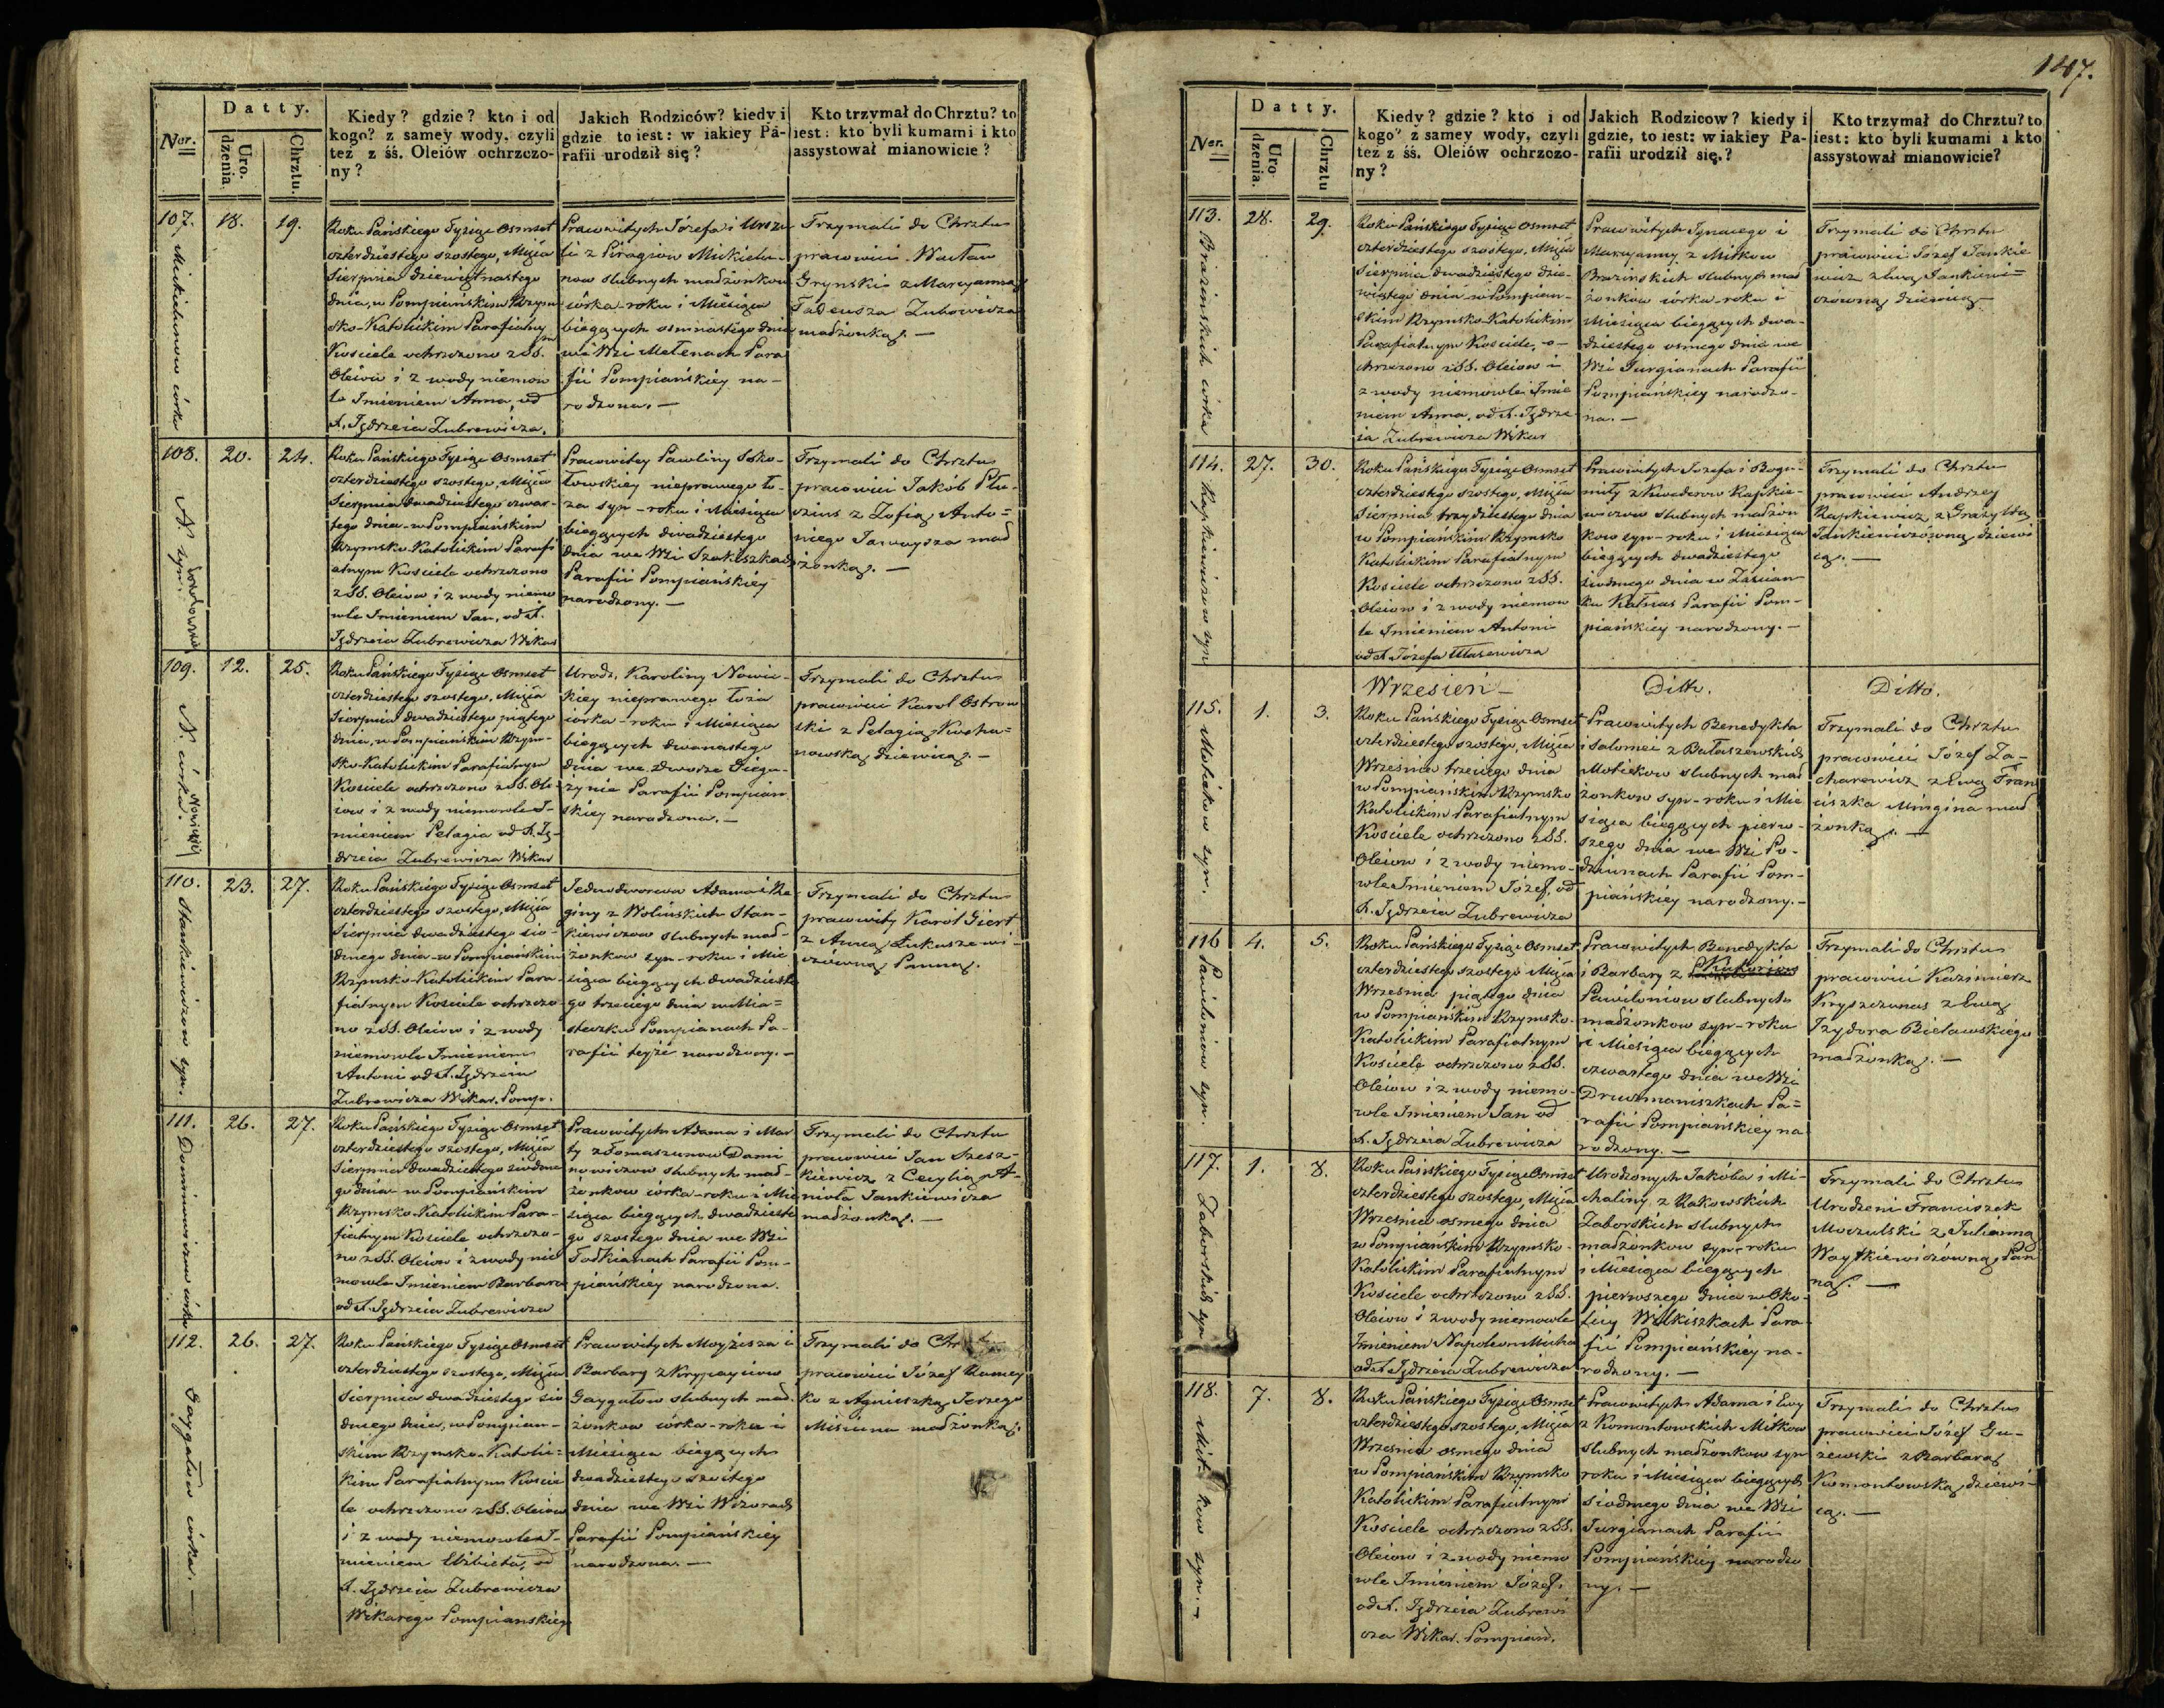 Ner.
Datty.
Uro-
dzenia.
Chrztu.
Kiedy? gdzie? kto i od
kogo? z samey wody, czyli
też z śś. Oleiów ochrzczo-
ny?
Jakich Rodziców? kiedy i
gdzie to iest: w iakiey Pa-
rafii urodził się?
Kto trzymał do Chrztu? to
iest: kto byli kumami i kto
assystował mianowicie?
107.
Mickielunow córka
18.
19.
Roku Pańskiego Tysiąc Osmset
czterdziestego szostego, Msca
Sierpnia dziewiętnastego
dnia, w Pompiańskim Rzym-
sko-Katolickim Parafialny
m
Kosciele ochrzczono z SS.
Oleiow i z wody niemow
le Imieniem Anna, od
X. Jędrzeia Zubrewicza.
Prawowitych Józefa i Urszu
li z Piragiow Mickielu-
now slubnych małżonkow
córka - roku i Miesiąca
biegących osmnastego dnia
we Wsi Metenach Para
fii Pompiańskiey na-
rodzona. —
Trzymali do Chrztu
pracowici Wacław
Grynski z Maryanną
Tadeusza Zubowicza
małżonką. —
108.
N. Sokołowski
syn.
20.
24.
Roku Pańskiego Tysiąc Osmset
czterdziestego szostego, Msca
Sierpnia dwadziestego czwar-
tego dnia - w Pompiańskim
Rzymsko-Katolickim Parafi
alnym Kosciele ochrzczono
z SS. Oleiow i z wody niemo
wle Imieniem Jan, od X.
Jędrzeia Zubrewicza Wikar
Pracowitey Pawliny Soko-
łowskiey nieprawego ło-
ża syn - roku i Miesiąca
biegących dwadziestego
dnia we Wsi Szakiszkach
Parafii Pompiańskiey
narodzony. —
Trzymali do Chrztu
pracowici Jakób Płu-
czius z Zofią Anto=
niego mał
żonką. —
109.
N. Nowickiey
córka.
12.
25.
Roku Pańskiego Tysiąc Osmset
czterdziestego szostego, Msca
Sierpnia dwadziestego piątego
dnia, w Pompiańskim Rzym-
sko-Katolickim Parafialnym
Kosciele ochrzczono z SS. Ole-
iow i z wody niemowle I-
mieniem Pelagia od X. Ję-
drzeia Zubrewicza Wikar
Urodz. Karoliny Nowic-
kiey nieprawego łoża
córka - roku i Miesiąca
biegących dwanastego
dnia we Dworze Giegu-
żynie Parafii Pompian
skiey narodzona. —
Trzymali do Chrztu
pracowici Karol Ostrow
ski z Pelagią Kocha=
nowską dziewicą. —
110.
Stankiewiczow syn.
23.
27.
Roku Pańskiego Tysiąc Osmset
czterdziestego szostego, Msca
Sierpnia dwadziestego sio-
dmego dnia - w Pompiańskim
Rzymsko-Katolickim Para-
fialnym Kosciele ochrzczo-
no z SS. Oleiow i z wody
niemowle Imieniem
Antoni od X. Jędrzeia
Zubrewicza Wikar. Pomp.
Jednodworcow Adama i Re-
giny z Wolińskich Stan-
kiewiczow slubnych mał-
żonkow syn - roku i Mie
siąca biegących dwadzieste
go trzeciego dnia w Mia=
steczku Pompianach Pa-
rafii teyże narodzony. —
Trzymali do Chrztu
pracowity Karol Giert
z Anną Łukaszewi-
czówną Panną.
111.
Dominowiczow córka
26.
27.
Roku Pańskiego Tysiąc Osmset
czterdziestego szostego, Msca
Sierpnia dwadziestego siódme
go dnia - w Pompiańskim
Rzymsko-Katolickim Para-
fialnym Kosciele ochrzczo-
no z SS. Oleiow i z wody nie
mowle Imieniem Barbara
od X. Jędrzeia Zubrewicza
Prawowitych Adama i Mar
ty z Tomaszunow Domi
nowiczow slubnych mał-
żonkow córka - roku i Mie
siąca biegących dwadzieste
go szostego dnia we Wsi
Tołkianach Parafii Pom-
piańskiey narodzona.
Trzymali do Chrztu
pracowici Jan Szesz-
kiewicz z Cecylią A-
nioła Jankiewicza
małżonką. —
112.
Gaygałow córka. —
26.
27.
Roku Pańskiego Tysiąc Osmset
czterdziestego szostego, Msca
Sierpnia dwadziestego sio
dmego dnia, w Pompian-
skim Rzymsko-Katolic=
kim Parafialnym Koscie
le ochrzczono z SS. Oleiow
i z wody niemowle I-
mieniem Elżbieta, od
X. Jędrzeia Zubrewicza
Wikarego Pompianskiego
Prawowitych Moyżesza i
Barbary z Krypayciow
Gaygałow slubnych mał-
żonkow córka - roku i
Miesiąca biegących
dwadziestego szostego
dnia we Wsi Wizorach
Parafii Pompiańskiey
narodzona. —
Trzymali do Chr
pracowici Józef Rumey
ko z Agnieszką Jerzego
Misiuna małżonką.
147.
Ner.
Datty.
Uro-
dzenia.
Chrztu
Kiedy? gdzie? kto i od
kogo? z samey wody, czyli
też z śś. Oleiów ochrzczo-
ny?
Jakich Rodzicow? kiedy i
gdzie, to iest: w iakiey Pa-
rafii urodził się.?
Kto trzymał do Chrztu? to
iest: kto byli kumami i kto
assystował mianowicie?
113.
Brazinskich córka
28.
29.
Roku Pańskiego Tysiąc Osmset
czterdziestego szostego, Msca
Sierpnia dwadziestego dzie-
wiątego dnia w Pompian-
skim Rzymsko-Katolickim
Parafialnym Kosciele, o-
chrzczono z SS. Oleiow i
z wody niemowle Imie
niem Anna, od X. Jędrze
ia Zubrewicza Wikar
Prawowitych Ignacego i
Maryanny z Mitkow
Brazinskich slubnych mał
żonkow córka - roku i
Miesiąca biegących dwa-
dziestego osmego dnia we
Wsi Jurgianach Parafii
Pompiańskiey narodzo-
na. —
Trzymali do Chrztu
pracowici Józef Jankie
wicz z Ewą Jankiewi=
czowną dziewicą —
114.
Rapkiewiczow syn
27.
30.
Roku Pańskiego Tysiąc Osmset
czterdziestego szostego, Msca
Sierpnia trzydziestego dnia
w Pompiańskim Rzymsko
Katolickim Parafialnym
Kosciele ochrzczono z SS.
Oleiow i z wody niemow
le Imieniem Antoni
od X. Józefa Własewicza
Prawowitych Jozefa i Bogu-
miły z Kwederow Rapkie-
wiczow slubnych małżon
kow syn - roku i Miesiąca
biegących dwadziestego
siodmego dnia w Zascian
ku Kałnas Parafii Pom-
piańskiey narodzony. —
Trzymali do Chrztu
pracowici Andrzey
Rapkiewicz z Grażyltą
Jankiewiczowną dziewi
cą. —
Wrzesień —
Ditto.
Ditto.
115.
Motiekow syn.
1.
3.
Roku Pańskiego Tysiąc Osmset
czterdziestego szostego, Msca
Wrzesnia trzeciego dnia
w Pompiańskim Rzymsko
Katolickim Parafialnym
Kosciele ochrzczono z SS.
Oleiow i z wody niemo-
wle Imieniem Józef, od
X. Jędrzeia Zubrewicza
Prawowitych Benedykta
i Salomei z Bałaszewskich
Motiekow slubnych mał
żonkow syn - roku i Mie
siąca biegących pierw-
szego dnia we Wsi Po-
dziunach Parafii Pom-
piańskiey narodzony. —
Trzymali do Chrztu
pracowici Józef Za-
charewicz z Ewą Fran
ciszka Mingina mał
żonką. —
116
Pawiloniow syn.
4.
5.
Roku Pańskiego Tysiąc Osmset
czterdziestego szostego Msca
Wrzesnia piątego dnia
w Pompiańskim Rzymsko-
Katolickim Parafialnym
Kosciele ochrzczono z SS.
Oleiow i z wody niemo-
wle Imieniem Jan od
X. Jędrzeia Zubrewicza
Prawowitych Benedykta
i Barbary z
Pawiloniow slubnych
małżonkow syn - roku
i Miesiąca biegących
czwartego dnia we Wsi
Druzmaniszkach Pa=
rafii Pompiańskiey na
rodzony. —
Trzymali do Chrztu
pracowici Kazimierz
Kryszczunas z Ewą
Izydora Bielawskiego
małżonką. —
117.
Zaborskich syn
1.
8.
Roku Pańskiego Tysiąc Osmset
czterdziestego szostego, Msca
Wrzesnia osmego dnia
w Pompiańskim Rzymsko-
Katolickim Parafialnym
Kosciele ochrzczono z SS.
Oleiow i z wody niemowle
Imieniem Napoleon Micha
od X. Jędrzeia Zubrewicza
Urodzonych Jakóba i Mi-
chaliny z Rakowskich
Zaborskich slubnych
małżonkow syn - roku
i Miesiąca biegących
pierwszego dnia w Oko-
licy Wilkiszkach Para
fii Pompiańskiey na-
rodzony. —
Trzymali do Chrztu
Urodzeni Franciszek
Moczulski z Julianną
Woytkiewiczówną Pan
ną. —
118.
Mitkow syn. —
7.
8.
Roku Pańskiego Tysiąc Osmset
czterdziestego szostego, Msca
Wrzesnia osmego dnia
w Pompiańskim Rzymsko
Katolickim Parafialnym
Kosciele ochrzczono z SS.
Oleiow i z wody niemo
wle Imieniem Józef,
od X. Jędrzeia Zubrewi
cza Wikar. Pompian.
Prawowitych Adama i Ewy
z Komontowskich Mitkow
slubnych małżonkow syn
roku i Miesiąca biegących
siodmego dnia we Wsi
Jurgianach Parafii
Pompiańskiey narodzo
ny. —
Trzymali do Chrztu
pracowici Józef Gu-
żewski z Barbarą
Komontowską dziewi-
cą. —